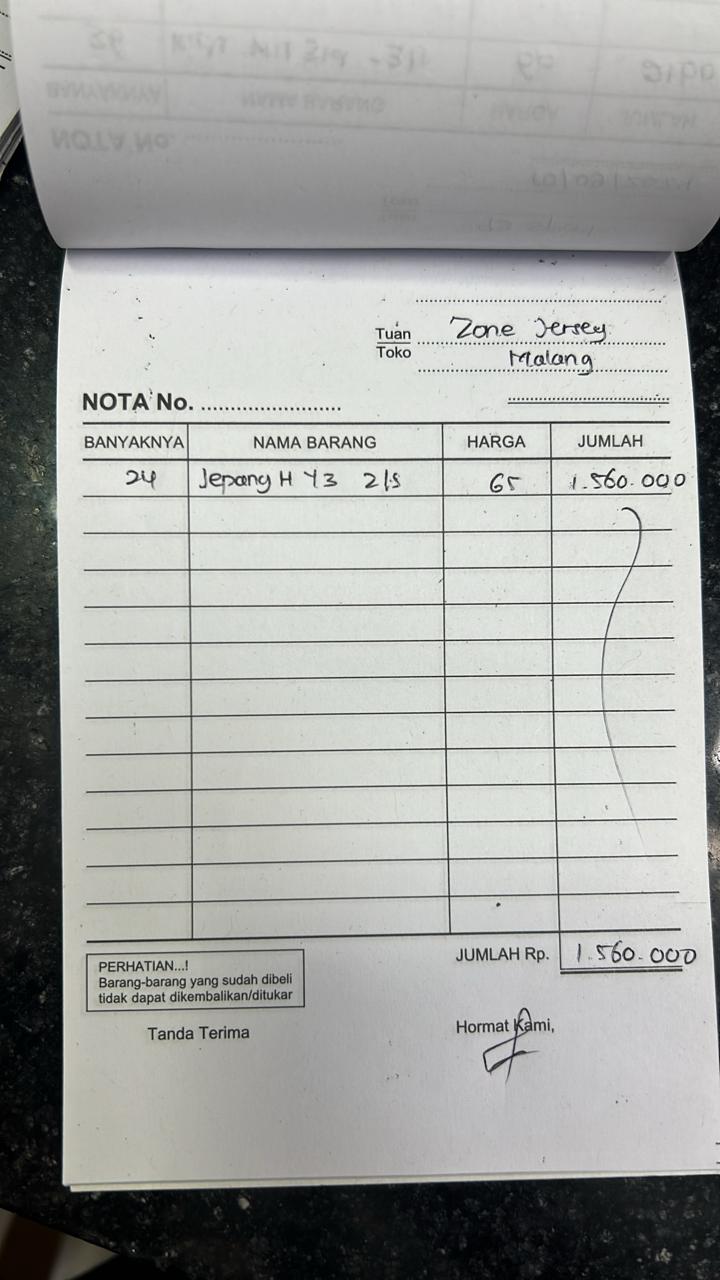 Tuan
Toko
Zone Jersey
Malang
NOTA No.
BANYAKNYA NAMA BARANG HARGA JUMLAH
24 Jepang H Y3 2/S 65 1.560.000
JUMLAH Rp. 1.560.000
PERHATIAN...!
Barang-barang yang sudah dibeli
tidak dapat dikembalikan/ditukar
Tanda Terima Hormat Kami,